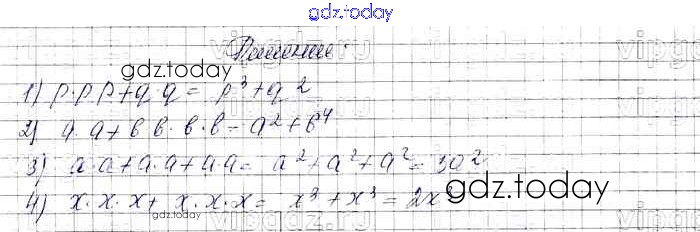 gdz.today
Решение:
gdz.today
1) p·p·p+q·q= p³+q²
2) a·a+b·b·b·b=a²+b⁴
3) a·a+a·a+a·a= a²+a²+a²=3a²
gdz.today
4) x·x·x+ x·x·x= x³+x³=2x³
gdz.today